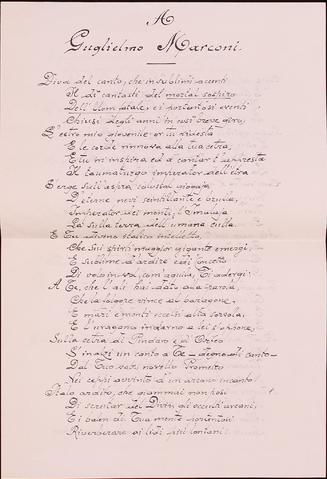 A
Guglielmo Marconi.
Diva del canto, che in sublimi accenti
A di cantasti del mortal sospiro
Dell'Uom fatale, e i portentosi eventi
Chiusi degli anni in
L'estro mio giovenile or tu ridesta
E le corde rinnova alla tua cetra,
E tu m'inspira ed a cantar t'appresta
Il taumaturgo imperator dell'etra
S'erge sull'aspra
D'eterne nevi scintillante e bruna,
Imperator dei monti, l'Imalaja
Là sulla terra dell'umana culla
E Tu divino italico intelletto,
Che sui spirti maggior gigante emergi,
E sublime d'ardire e di concetto
Di volo in vol, com'aquila, T'adergi.
A Te, che l'ali hai dato alla parola,
Che la folgore vince al paragone,
E mari e monti
E l'uragano indarno a lei s'oppone,
Sulla cetra di Pindaro e di Orfeo
S'inalzi un canto a Te – degno di canto –
Dal Tuo
Nei ceppi avvinto d'un arcano incanto
Italo ardito, che giammai non
Di scrutar del Divin gli occulti arcani,
Ei ben di Tua mente portentosi
Riverberare ai lidi più lontani